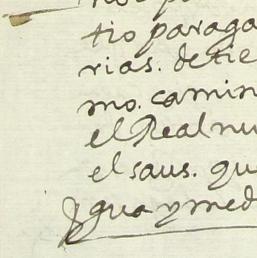 tio paraga
rias. detie
mo. camin
el Real nu
el saus. qu
Ygua y med